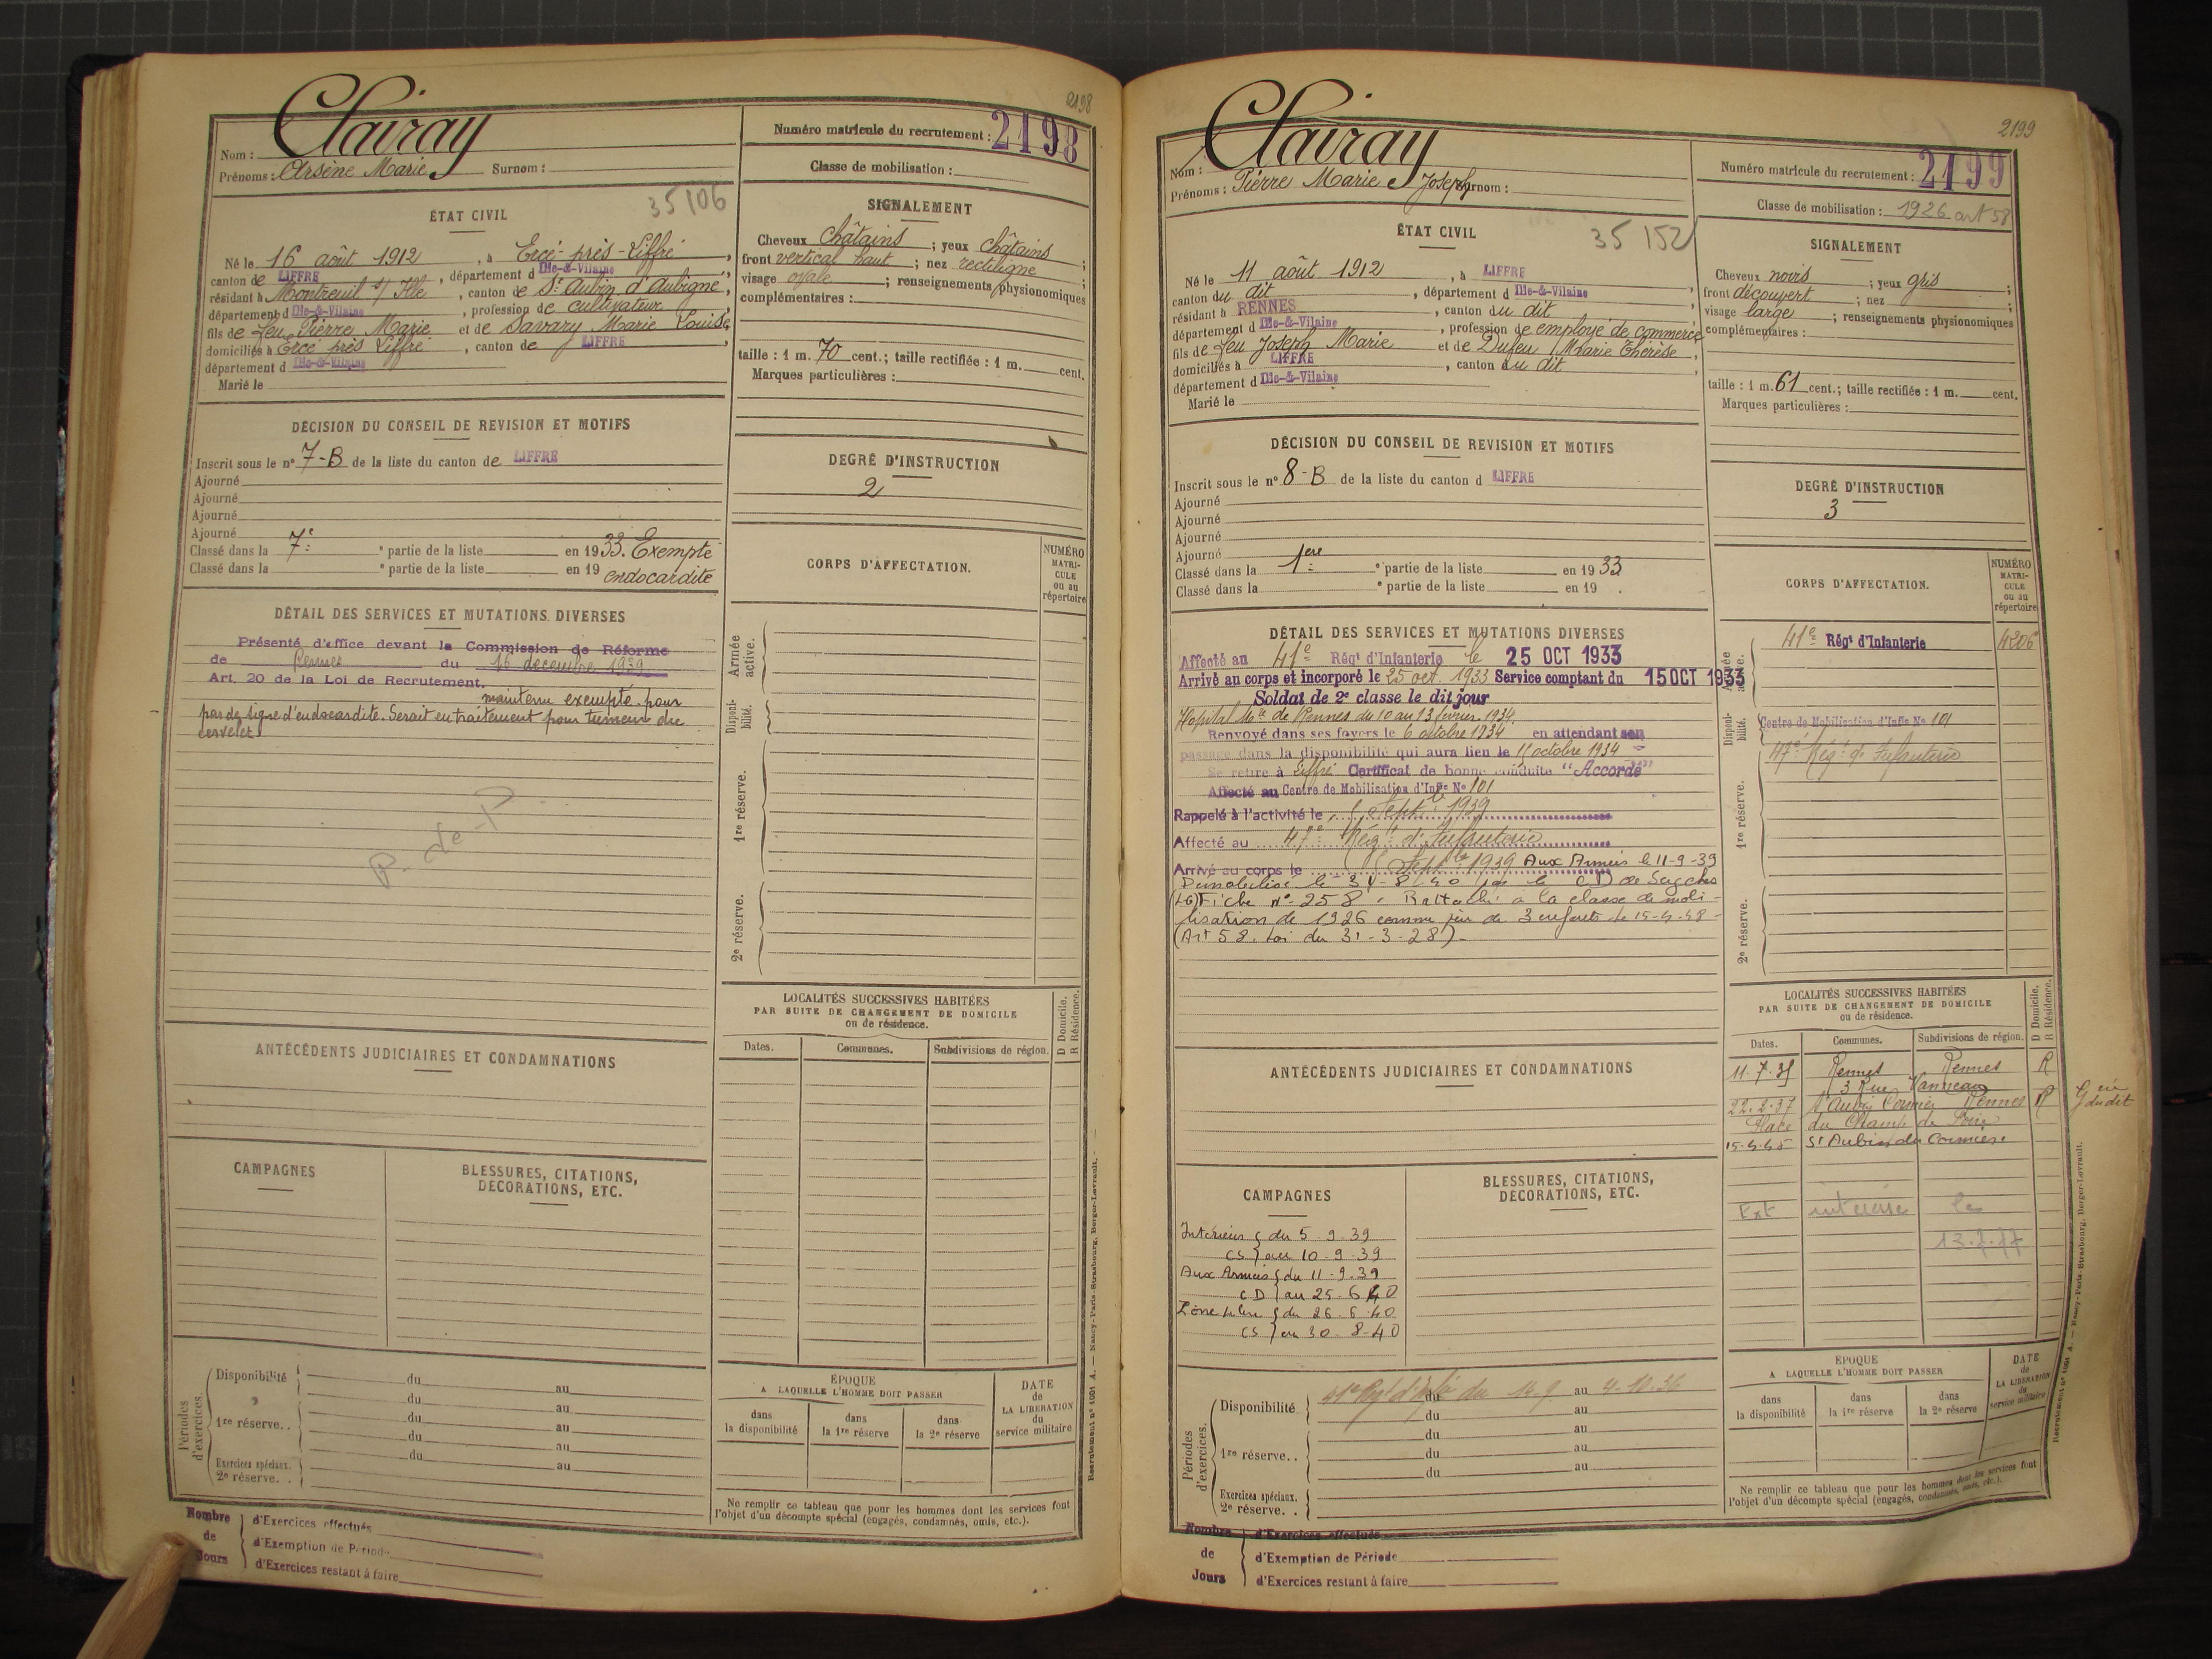 2198
Clairay
Nom :
Prénoms : Arsène Marie Surnom :
Numéro matricule du recrutement : 2198
Classe de mobilisation :
35106
ÉTAT CIVIL
Né le 16 août 1912 , à Ercé-près-Liffré ,
canton de LIFFRÉ , département d Ille-&-Vilaine ,
résidant à Montreuil s/ Ille , canton de St Aubin d'Aubigné ,
département d Ille-&-Vilaine , profession de cultivateur ,
fils de feu Pierre Marie et de Savary Marie Louise ,
domiciliés à Ercé près Liffré , canton de LIFFRÉ
département d Ille-&-Vilaine
Marié le
SIGNALEMENT
Cheveux châtains ; yeux châtains ;
front vertical haut ; nez rectiligne ;
visage ovale ; renseignements physionomiques
complémentaires :
taille : 1 m. 70 cent. ; taille rectifiée : 1 m. cent.
Marques particulières :
DÉCISION DU CONSEIL DE REVISION ET MOTIFS
Inscrit sous le n° 7-B de la liste du canton de LIFFRÉ
Ajourné
Ajourné
Ajourné
Ajourné
Classé dans la 7e ° partie de la liste en 1933. Exempté
Classé dans la ° partie de la liste en 19 endocardite
DEGRÉ D'INSTRUCTION
2
DÉTAIL DES SERVICES ET MUTATIONS DIVERSES
Présenté d'office devant la Commission de Réforme
de Rennes du 16 décembre 1939
Art. 20 de la Loi de Recrutement.
maintenu exempté pour
pas de signe d'endocardite. Serait en traitement pour tumeur du
cervelet.
P. de P.
CORPS D'AFFECTATION.
NUMÉRO MATRI-CULE ou au répertoire
Armée active.
Disponi-bilité.
1re réserve.
2e réserve.
LOCALITÉS SUCCESSIVES HABITÉES
PAR SUITE DE CHANGEMENT DE DOMICILE
ou de résidence.
D Domicile.
R Résidence.
Dates. Communes. Subdivisions de région.
ANTÉCÉDENTS JUDICIAIRES ET CONDAMNATIONS
CAMPAGNES
BLESSURES, CITATIONS,
DÉCORATIONS, ETC.
Périodes d'exercices.
Disponibilité du au
du au
1re réserve. . du au
du au
du au
Exercices spéciaux.
2e réserve. .
ÉPOQUE
A LAQUELLE L'HOMME DOIT PASSER
dans la disponibilité
dans la 1re réserve
dans la 2e réserve
DATE de LA LIBÉRATION du service militaire
Ne remplir ce tableau que pour les hommes dont les services font
l'objet d'un décompte spécial (engagés, condamnés, omis, etc.).
Nombre de Jours
d'Exercices effectués
d'Exemption de Période
d'Exercices restant à faire
Recrutement n° 1001 A. — Nancy-Paris-Strasbourg, Berger-Levrault.
2199
Clairay
Nom :
Prénoms : Pierre Marie Joseph Surnom :
Numéro matricule du recrutement : 2199
Classe de mobilisation : 1926 art 58
35152
ÉTAT CIVIL
Né le 11 août 1912 , à LIFFRÉ
canton du dit , département d Ille-&-Vilaine ,
résidant à RENNES , canton du dit ,
département d Ille-&-Vilaine , profession de employé de commerce
fils de feu Joseph Marie et de Dufeu Marie Thérèse ,
domiciliés à LIFFRÉ , canton du dit ,
département d Ille-&-Vilaine
Marié le
SIGNALEMENT
Cheveux noirs ; yeux gris ;
front découvert ; nez ;
visage large ; renseignements physionomiques
complémentaires :
taille : 1 m. 61 cent. ; taille rectifiée : 1 m. cent.
Marques particulières :
DÉCISION DU CONSEIL DE REVISION ET MOTIFS
Inscrit sous le n° 8-B de la liste du canton d LIFFRÉ
Ajourné
Ajourné
Ajourné
Ajourné
Classé dans la 1ere ° partie de la liste en 1933
Classé dans la ° partie de la liste en 19 .
DEGRÉ D'INSTRUCTION
3
DÉTAIL DES SERVICES ET MUTATIONS DIVERSES
Affecté au 41e Régt d'Infanterie le 25 OCT 1933
Arrivé au corps et incorporé le 25 oct. 1933 Service comptant du 15 OCT 1933
Soldat de 2e classe le dit jour
Hôpital Mre de Rennes du 10 au 13 février 1934
Renvoyé dans ses foyers le 6 octobre 1934 en attendant son
passage dans la disponibilité qui aura lieu le 15 octobre 1934
Se retire à Liffré Certificat de bonne conduite "Accordé"
Affecté au Centre de Mobilisation d'Infie No 101
Rappelé à l'activité le Septbre 1939
Affecté au 47e Régt d'Infanterie
Arrivé au corps le Septbre 1939 Aux Armées le 11-9-39
Démobilisé le 31-8-40 par le CD de
Fiche n° 258. Rattaché à la classe de mobi-
lisation de 1926 comme père de 3 enfants le 15-4-48
(Art 58. Loi du 31-3-28).
CORPS D'AFFECTATION.
NUMÉRO MATRI-CULE ou au répertoire
Armée active. 41e Régt d'Infanterie 4206
Disponi-bilité. Centre de Mobilisation d'Infie No 101
47e Régt d'Infanterie
1re réserve.
2e réserve.
LOCALITÉS SUCCESSIVES HABITÉES
PAR SUITE DE CHANGEMENT DE DOMICILE
ou de résidence.
D Domicile.
R Résidence.
Dates. Communes. Subdivisions de région.
11-7-35 Rennes Rennes R
3 Rue Vanneau
22.2.37 St Aubin Cormier Rennes R Gie du dit
Place du Champ de Foire
15-4-48 St Aubin du Cormier
Ext intéressé le
13.7.77
ANTÉCÉDENTS JUDICIAIRES ET CONDAMNATIONS
CAMPAGNES
Intérieur du 5-9-39
CS au 10-9-39
Aux Armées du 11-9-39
CD au 25-6-40
Zone libre du 26-6-40
CS au 30-8-40
BLESSURES, CITATIONS,
DÉCORATIONS, ETC.
Périodes d'exercices.
Disponibilité 41e Regt d'Infie du 14.9 au 4-10-36
du au
1re réserve. . du au
du au
du au
Exercices spéciaux.
2e réserve. .
ÉPOQUE
A LAQUELLE L'HOMME DOIT PASSER
dans la disponibilité
dans la 1re réserve
dans la 2e réserve
DATE de LA LIBÉRATION du service militaire
Ne remplir ce tableau que pour les hommes dont les services font
l'objet d'un décompte spécial (engagés, condamnés, omis, etc.).
Nombre de Jours
d'Exercices effectués
d'Exemption de Période
d'Exercices restant à faire
Recrutement n° 1001 A. — Nancy-Paris-Strasbourg, Berger-Levrault.